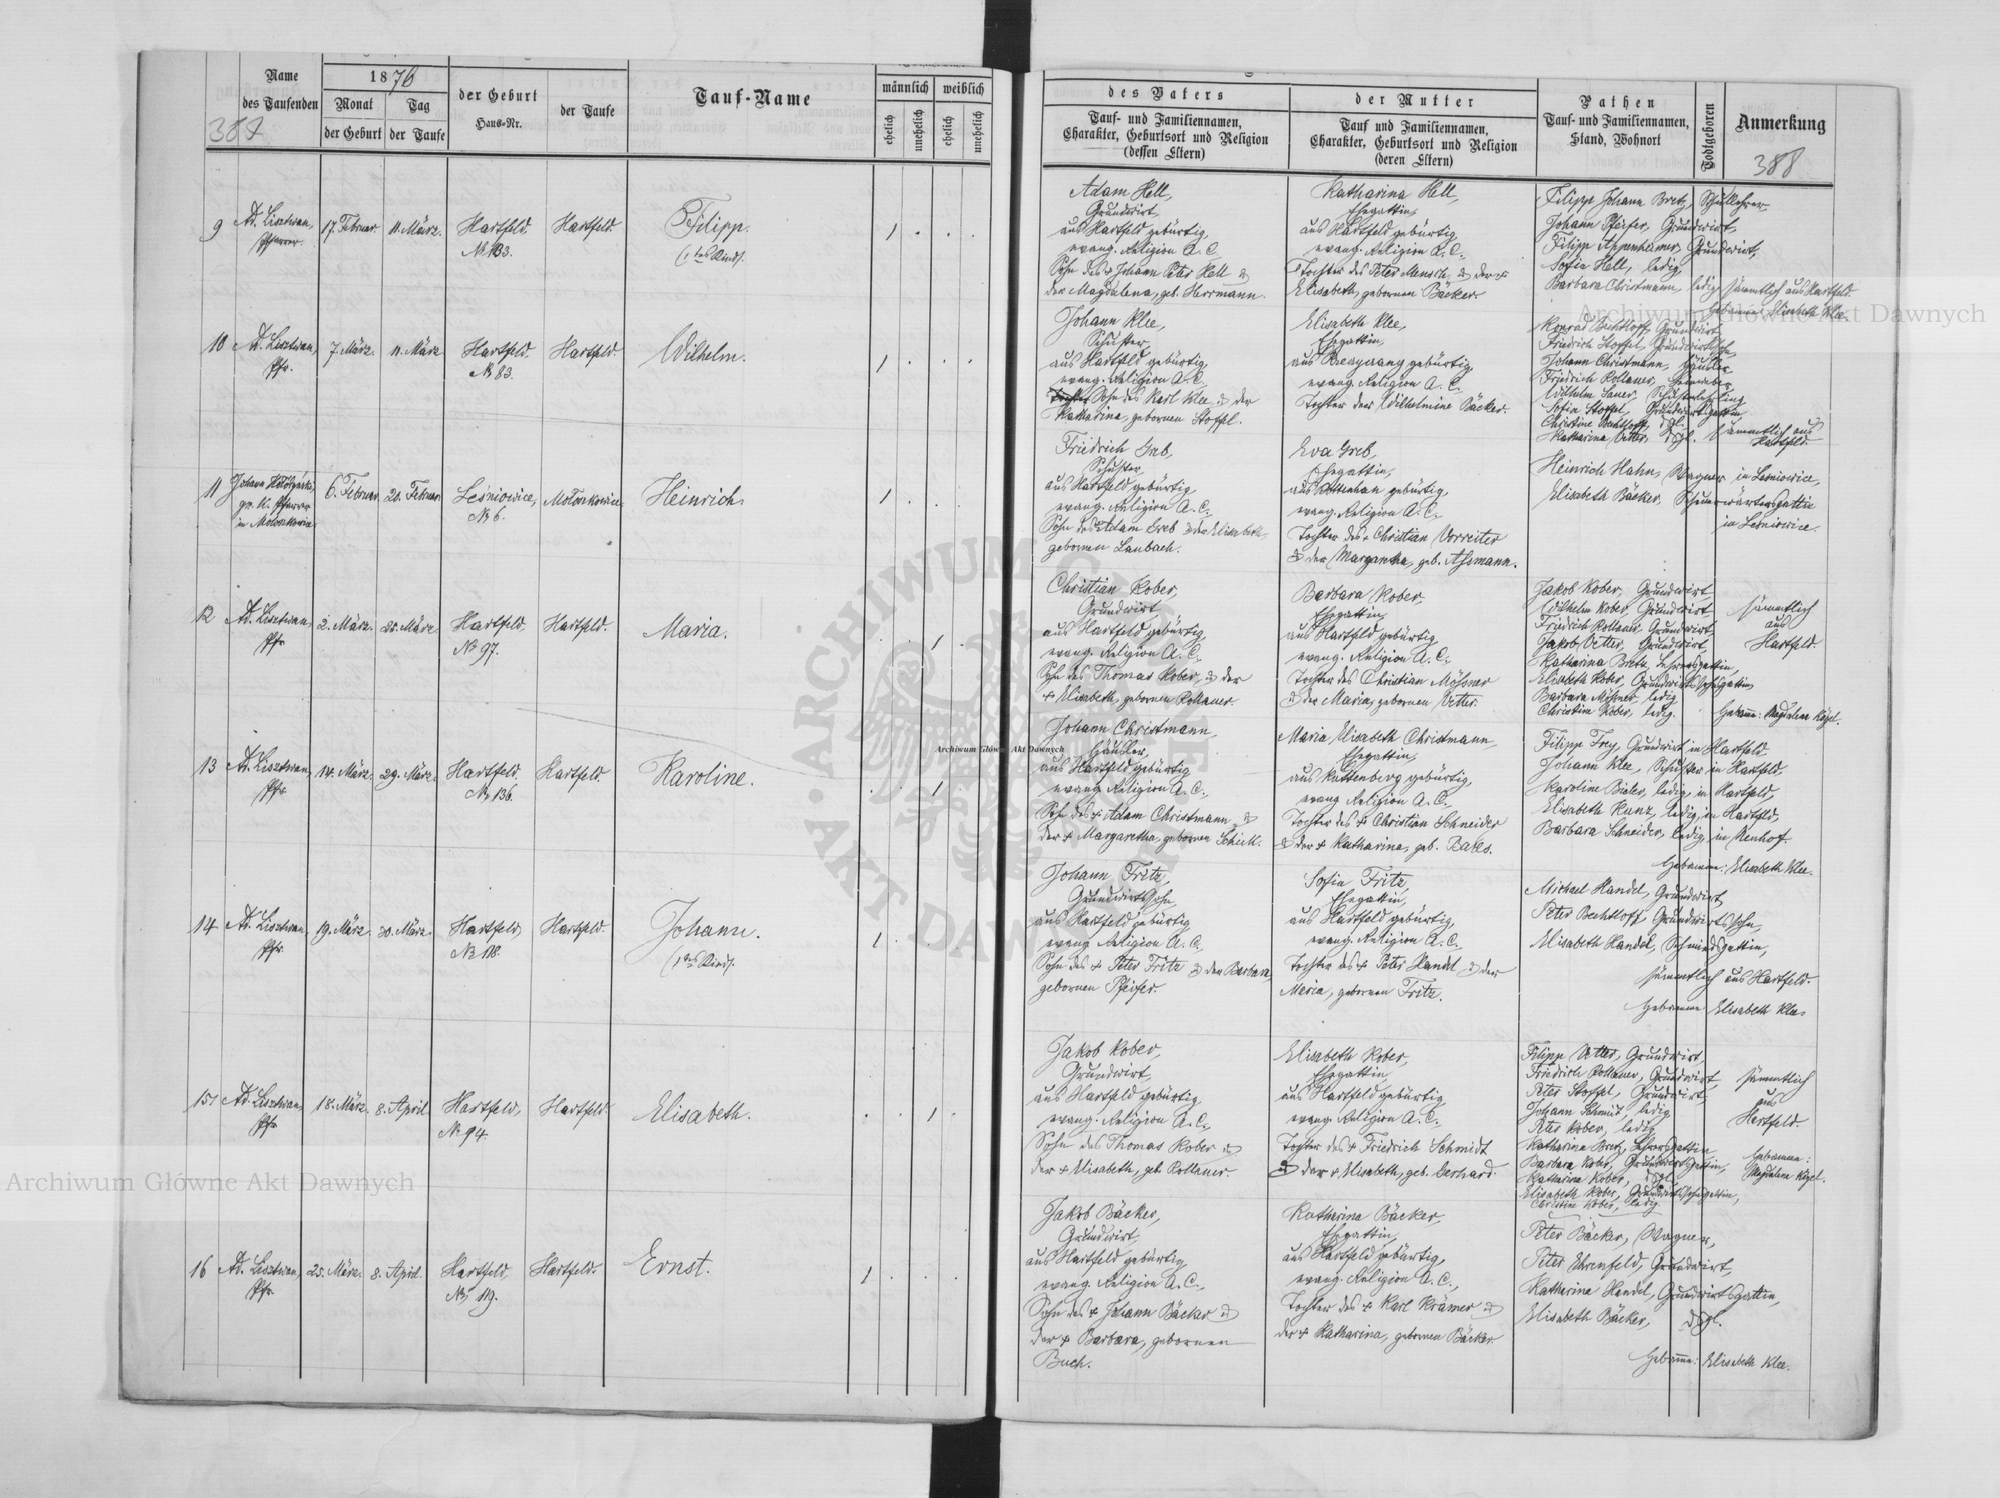 Name
des Taufenden
387
1876
Monat
Tag
der Geburt
der Taufe
der Geburt
Haus-Nr.
der Taufe
Tauf-Name
männlich
weiblich
ehelich
unehelich
ehelich
unehelich
des Vaters
Tauf- und Familiennamen,
Charakter, Geburtsort und Religion
(dessen Eltern)
der Mutter
Tauf und Familiennamen,
Charakter, Geburtsort und Religion
(deren Eltern)
Pathen
Tauf- und Familiennamen,
Stand, Wohnort
Todtgeboren
Anmerkung
388
9 Ad. Lisztwan, Pfarrer. 17. Februar. 11. März. Hartfeld. № 133. Hartfeld. Filipp. (1tes Kind). 1
Adam Hell,
Grundwirt,
aus Hartfeld gebürtig,
evang. Religion A. C.
Sohn des + Johann Peter Hell &
der Magdalena, geb. Herrmann.
Katharina Hell,
Ehegattin,
aus Hartfeld gebürtig,
evang. Religion A. C.,
Tochter des Peter Mensch & der +
Elisabeth, gebornen Bäcker.
Filipp Johann Bretz, Schullehrer,
Johann Pfeifer, Grundwirt,
Filipp Appenheimer, Grundwirt,
Sofia Hell, ledig,
Barbara Christmann, ledig, sämmtlich aus Hartfeld.
Hebamme: Elisabeth Klee.
10 Ad. Lisztwan, Pfr. 7. März. 11. März Hartfeld. № 83. Hartfeld. Wilhelm. 1
Johann Klee,
Schuster,
aus Hartfeld gebürtig,
evang. Religion A. C.
Sohn des Karl Klee & der
Katharina, gebornen Stoffel.
Elisabeth Klee,
Ehegattin,
gebürtig,
evang. Religion A. C.,
Tochter der Wilhelmine Bäcker.
Konrad Bechtloff, Grundwirt,
Friedrich Stoffel,
Johann Christmann, Häusler,
Friedrich Kollauer,
Wilhelm Sauer, Schusterlehrling,
Sofia Stoffel, Grundwirtsgattin,
Christine Bechtloff, dgl.
Katharina Vetter, dgl. sämmtlich aus
Hartfeld.
11 Johann pfarrer in 6. Februar. 20. Februar Leśniowice, № 6. Heinrich. 1
Friedrich Greb,
Schuster,
aus Hartfeld gebürtig,
evang. Religion A. C.,
Sohn des Adam Greb & der Elisabeth,
gebornen Laubach.
Eva Greb,
Ehegattin,
aus Rottenhan gebürtig,
evang. Religion A. C.,
Tochter des Christian Vorreiter
& der Margaretha, geb. Assmann.
Heinrich Hahn, Wagner in Leśniowice,
Elisabeth Bäcker,
in Leśniowice.
12 Ad. Lisztwan, Pfr 2. März. 25. März. Hartfeld, № 97. Hartfeld. Maria. 1
Christian Kober,
Grundwirt,
aus Hartfeld gebürtig,
evang. Religion A. C.,
Sohn des Thomas Kober, & der
+ Elisabeth, gebornen Kollauer.
Barbara Kober,
Ehegattin,
aus Hartfeld gebürtig,
evang. Religion A. C.,
Tochter des Christian Mössner
& der Maria, gebornen Vetter.
Jakob Kober, Grundwirt,
Wilhelm Kober, Grundwirt,
Friedrich Kollauer, Grundwirt,
Jakob Vetter, Grundwirt,
Katharina Bretz, Lehrersgattin,
Elisabeth Kober, Grundwirtssohnsgattin,
Barbara Mössner, ledig,
Christine Kober, ledig.
sämmtlich
aus
Hartfeld.
Hebamme: Magdalena Kögel.
13 Ad. Lisztwan, Pfr. 14. März. 29. März. Hartfeld. № 136. Hartfeld. Karoline. 1
Johann Christmann,
Häusler,
aus Hartfeld gebürtig,
evang. Religion A. C.,
Sohn des + Adam Christmann &
der + Margaretha, gebornen Schick.
Maria Elisabeth Christmann,
Ehegattin,
aus Kuttenberg gebürtig,
evang. Religion A. C.
Tochter des + Christian Schneider
& der + Katharina, geb. Bares.
Filipp Frey, Grundwirt in Hartfeld,
Johann Klee, Schuster in Hartfeld,
Karoline Bisler, ledig, in Hartfeld,
Elisabeth Kunz, ledig, in Hartfeld,
Barbara Schneider, ledig, in Neuhof.
Hebamme: Elisabeth Klee.
14 Ad. Lisztwan, Pfr. 19. März. 30. März. Hartfeld, № 118. Hartfeld. Johann. (1tes Kind). 1
Johann Fritz,
Grundwirtssohn,
aus Hartfeld gebürtig,
evang. Religion A. C.
Sohn des + Peter Fritz & der Barbara,
gebornen Pfeifer.
Sofia Fritz,
Ehegattin,
aus Hartfeld gebürtig,
evang. Religion A. C.
Tochter des + Peter Handel & der
Maria, gebornen Fritz.
Michael Handel, Grundwirt,
Peter Bechtloff, Grundwirtssohn,
Elisabeth Handel, Schmiedsgattin,
sämmtlich aus Hartfeld.
Hebamme: Elisabeth Klee.
15 Ad. Lisztwan, Pfr. 18. März. 8. April Hartfeld, № 94. Hartfeld. Elisabeth. 1
Jakob Kober,
Grundwirt,
aus Hartfeld gebürtig,
evang. Religion A. C.,
Sohn des Thomas Kober &
der + Elisabeth, geb. Kollauer.
Elisabeth Kober,
Ehegattin,
aus Hartfeld gebürtig,
evang. Religion A. C.,
Tochter des + Friedrich Schmidt
& der + Elisabeth, geb. Gerhard.
Filipp Vetter, Grundwirt,
Friedrich Kollauer, Grundwirt,
Peter Stoffel, Grundwirt,
Johann Schmidt, ledig,
Peter Kober, ledig,
Katharina Bretz, Lehrersgattin,
Barbara Kober, Grundwirtsgattin,
Katharina Kober, dgl.
Elisabeth Kober, Grundwirtssohnsgattin,
Christine Kober, ledig.
sämmtlich
aus
Hartfeld.
Hebamme:
Magdalena Kögel.
16 Ad. Lisztwan, Pfr. 23. März. 8. April. Hartfeld, № 119. Hartfeld. Ernst. 1
Jakob Bäcker,
Grundwirt,
aus Hartfeld gebürtig,
evang. Religion A. C.,
Sohn des + Johann Bäcker &
der + Barbara, gebornen
Buch.
Katharina Bäcker,
Ehegattin,
aus Hartfeld gebürtig,
evang. Religion A. C.,
Tochter des + Karl Krämer &
der + Katharina, gebornen Bäcker.
Peter Bäcker, Wagner,
Peter Ehrenfeld, Grundwirt,
Katharina Handel, Grundwirtsgattin,
Elisabeth Bäcker, dgl.
Hebamme: Elisabeth Klee.
Archiwum Główne Akt Dawnych
Archiwum Główne Akt Dawnych
Archiwum Główne Akt Dawnych